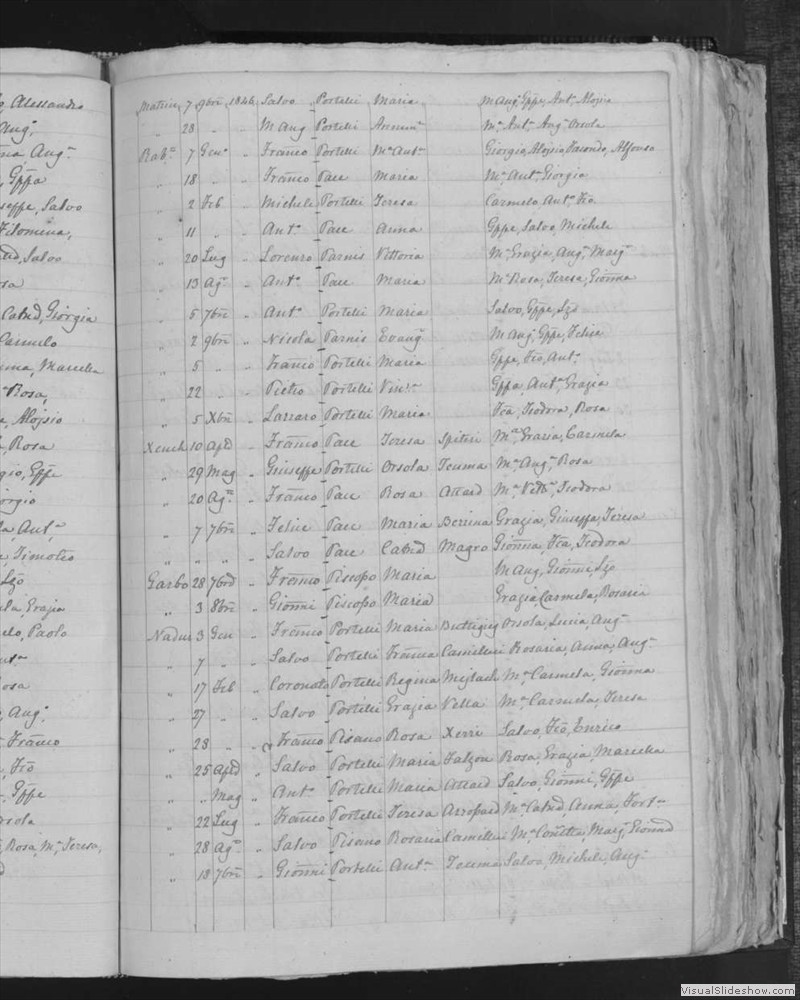 Alessandro
Aug.
Aug.
Gppa
seppe, Salvo
Filomena,
Salvo
sa
Catnd, Giorgia
Carmelo
Rosa,
Alojsio
Rosa
gio, Gppe
orgio
Ant.
Timoteo
Szo
Grazia
elo, Paolo
osa
Aug.
Franco
Fco
Gppe
rsola
Rosa, Ma. Teresa,
Matrice 7 9bre 1846 Salvo Portelli Maria M Aug. Gppe, Ant. Alojsia
" 28 " " M Aug Portelli Ma. Ant. Ang. Orsola
Rab. 7 Gen. " Franco Portelli Ma. Ant. Giorgio, Alojsia, Facondo, Alfonso
" 18 " " Franco Pace Maria Ma. Ant. Giorgia
" 2 Feb " Michele Portelli Teresa Carmelo Ant. Fco
" 11 " " Ant. Pace Anna Gppe, Salvo, Michele
" 20 Lug " Lorenzo Parnis Vittoria Ma. Grazia, Aug. Marg.
" 13 Ag. " Ant. Pace Maria Ma. Rosa, Teresa, Gionna
" 5 7bre " Ant. Portelli Maria Salvo, Gppe, Szo
" 2 9bre " Nicola Parnis Evang. M Aug. Gppe, Felice
" 5 " " Franco Portelli Maria Gppe, Fco, Ant.
" 22 " " Pietro Portelli Vin. Gppa, Ant. Grazia
" 5 Xbre " Lazzaro Portelli Maria Fca, Teodora, Rosa
Xeuch 10 Apl " Franco Pace Teresa Spiteri Ma. Grazia, Carmela
" 29 Mag " Giuseppe Portelli Orsola Touma Ma. Aug. Rosa
" 20 Ag. " Franco Pace Rosa Attard Ma. Vitt. Teodora
" 7 7bre " Felice Pace Maria Bezzina Grazia, Giuseppa, Teresa
" " " " Salvo Pace Catnd Magro Gionna, Fca, Teodora
Garbo 28 7bre " Franco Piscopo Maria M Aug, Gionni, Szo
" 3 8bre " Gionni Piscopo Maria Grazia, Carmela, Rosaria
Nadur 3 Gen " Franco Portelli Maria Buttigieg Orsola, Lucia, Aug.
" 7 " " Salvo Portelli Franca Camilleri Rosaria, Anna, Aug.
" 17 Feb " Coronato Portelli Regina Mejlach Ma. Carmela, Gionna
" 27 " " Salvo Portelli Grazia Vella Ma. Carmela, Teresa
" 28 " " Franco Pisano Rosa Xerri Salvo, Fco, Enrico
" 25 Apl " Salvo Portelli Maria Falzon Rosa, Grazia, Maricchia
" " Mag " Ant. Portelli Maria Attard Salvo, Gionni, Gppe
" 22 Lug " Franco Portelli Teresa Azzopard Ma. Catnd, Anna, Fort.
" 28 Ag. " Salvo Pisano Rosaria Camilleri Ma. Concetta, Marg.
" 18 7bre " Gionni Portelli Ant. Touma Salvo, Michele, Aug.
VisualSlideshow.com